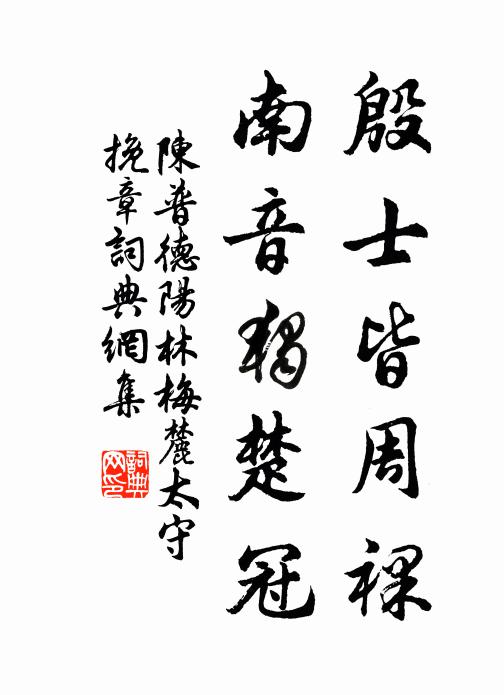 殷士皆周祼
南音獨楚冠
陳普德陽林梅麓太守
挽章詞典網集
詞典
网印